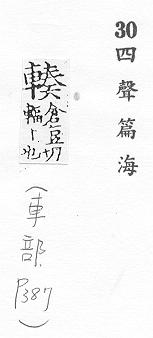 30四聲篇海
輳倉豆切
輻卜也
(車部
P387)